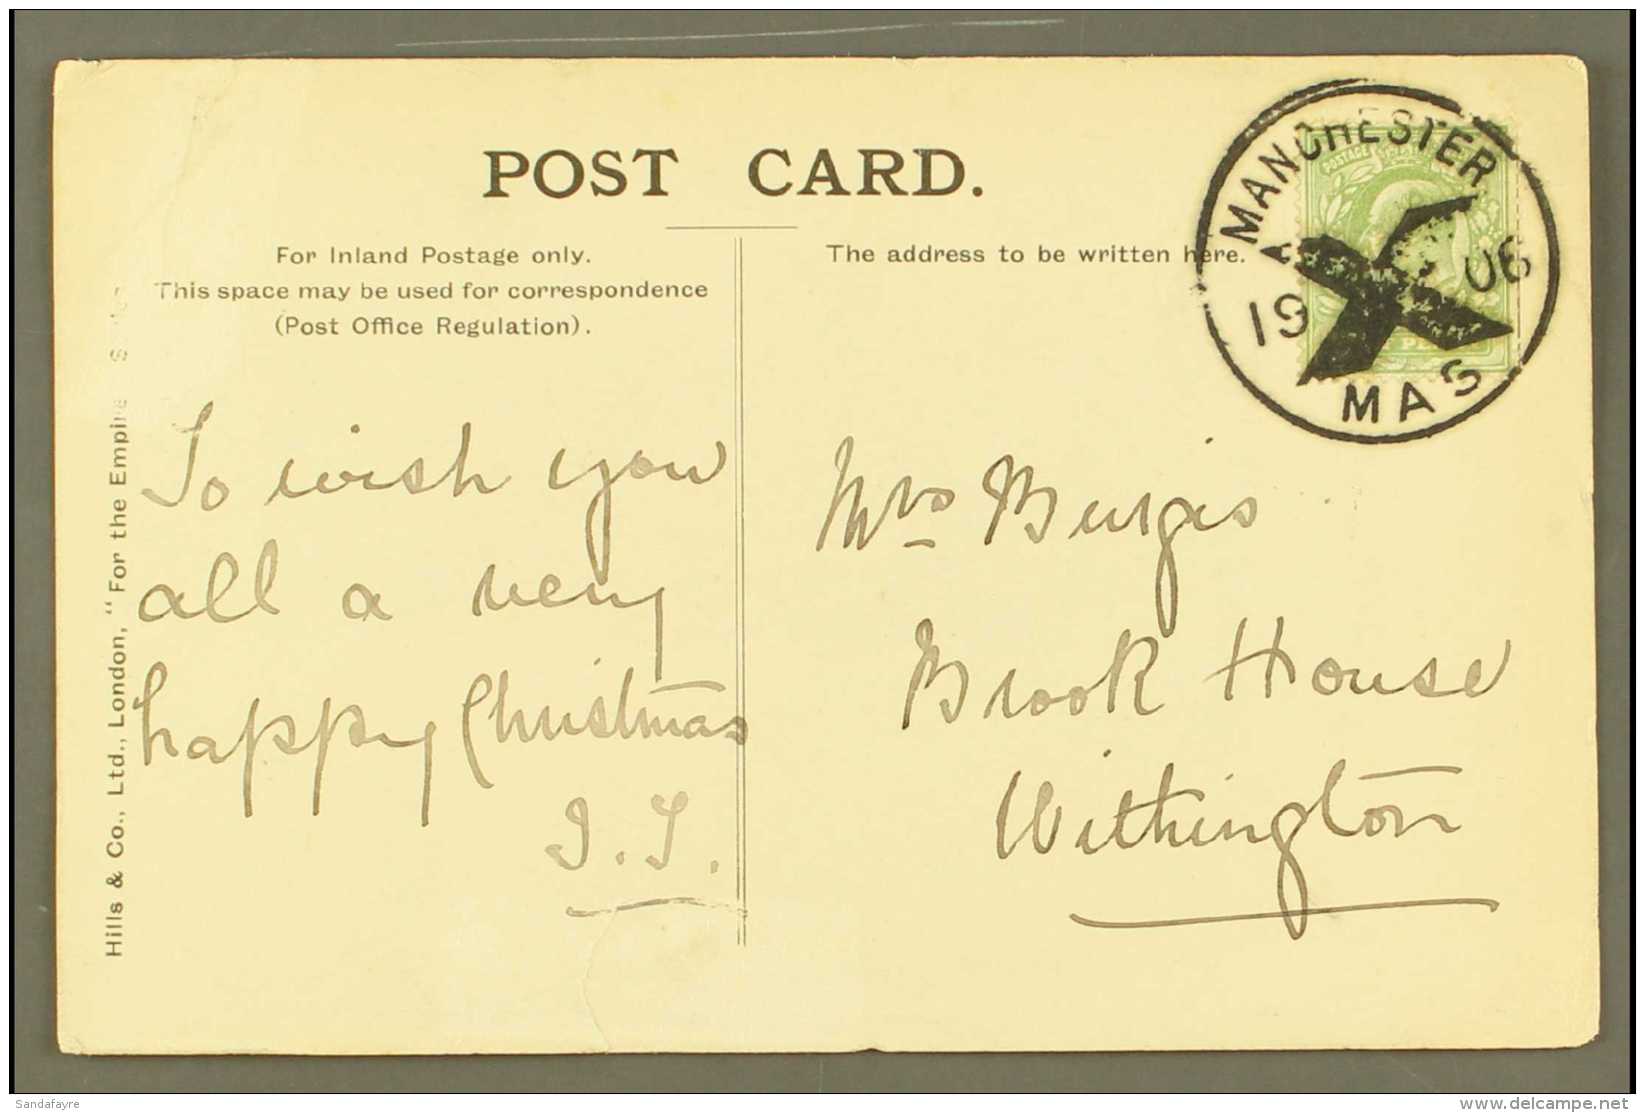 POST CARD.
For Inland Postage only.
This space may be used for correspondence
(Post Office Regulation).
The address to be written here.
MANCHESTER
19 06
MAS
POSTAGE
Hills & Co., Ltd., London, "For the Empire
To wish you
all a very
happy Christmas
I.T.
Mrs Burgis
Brook House
Withington
Sandafayre
delcampe.net